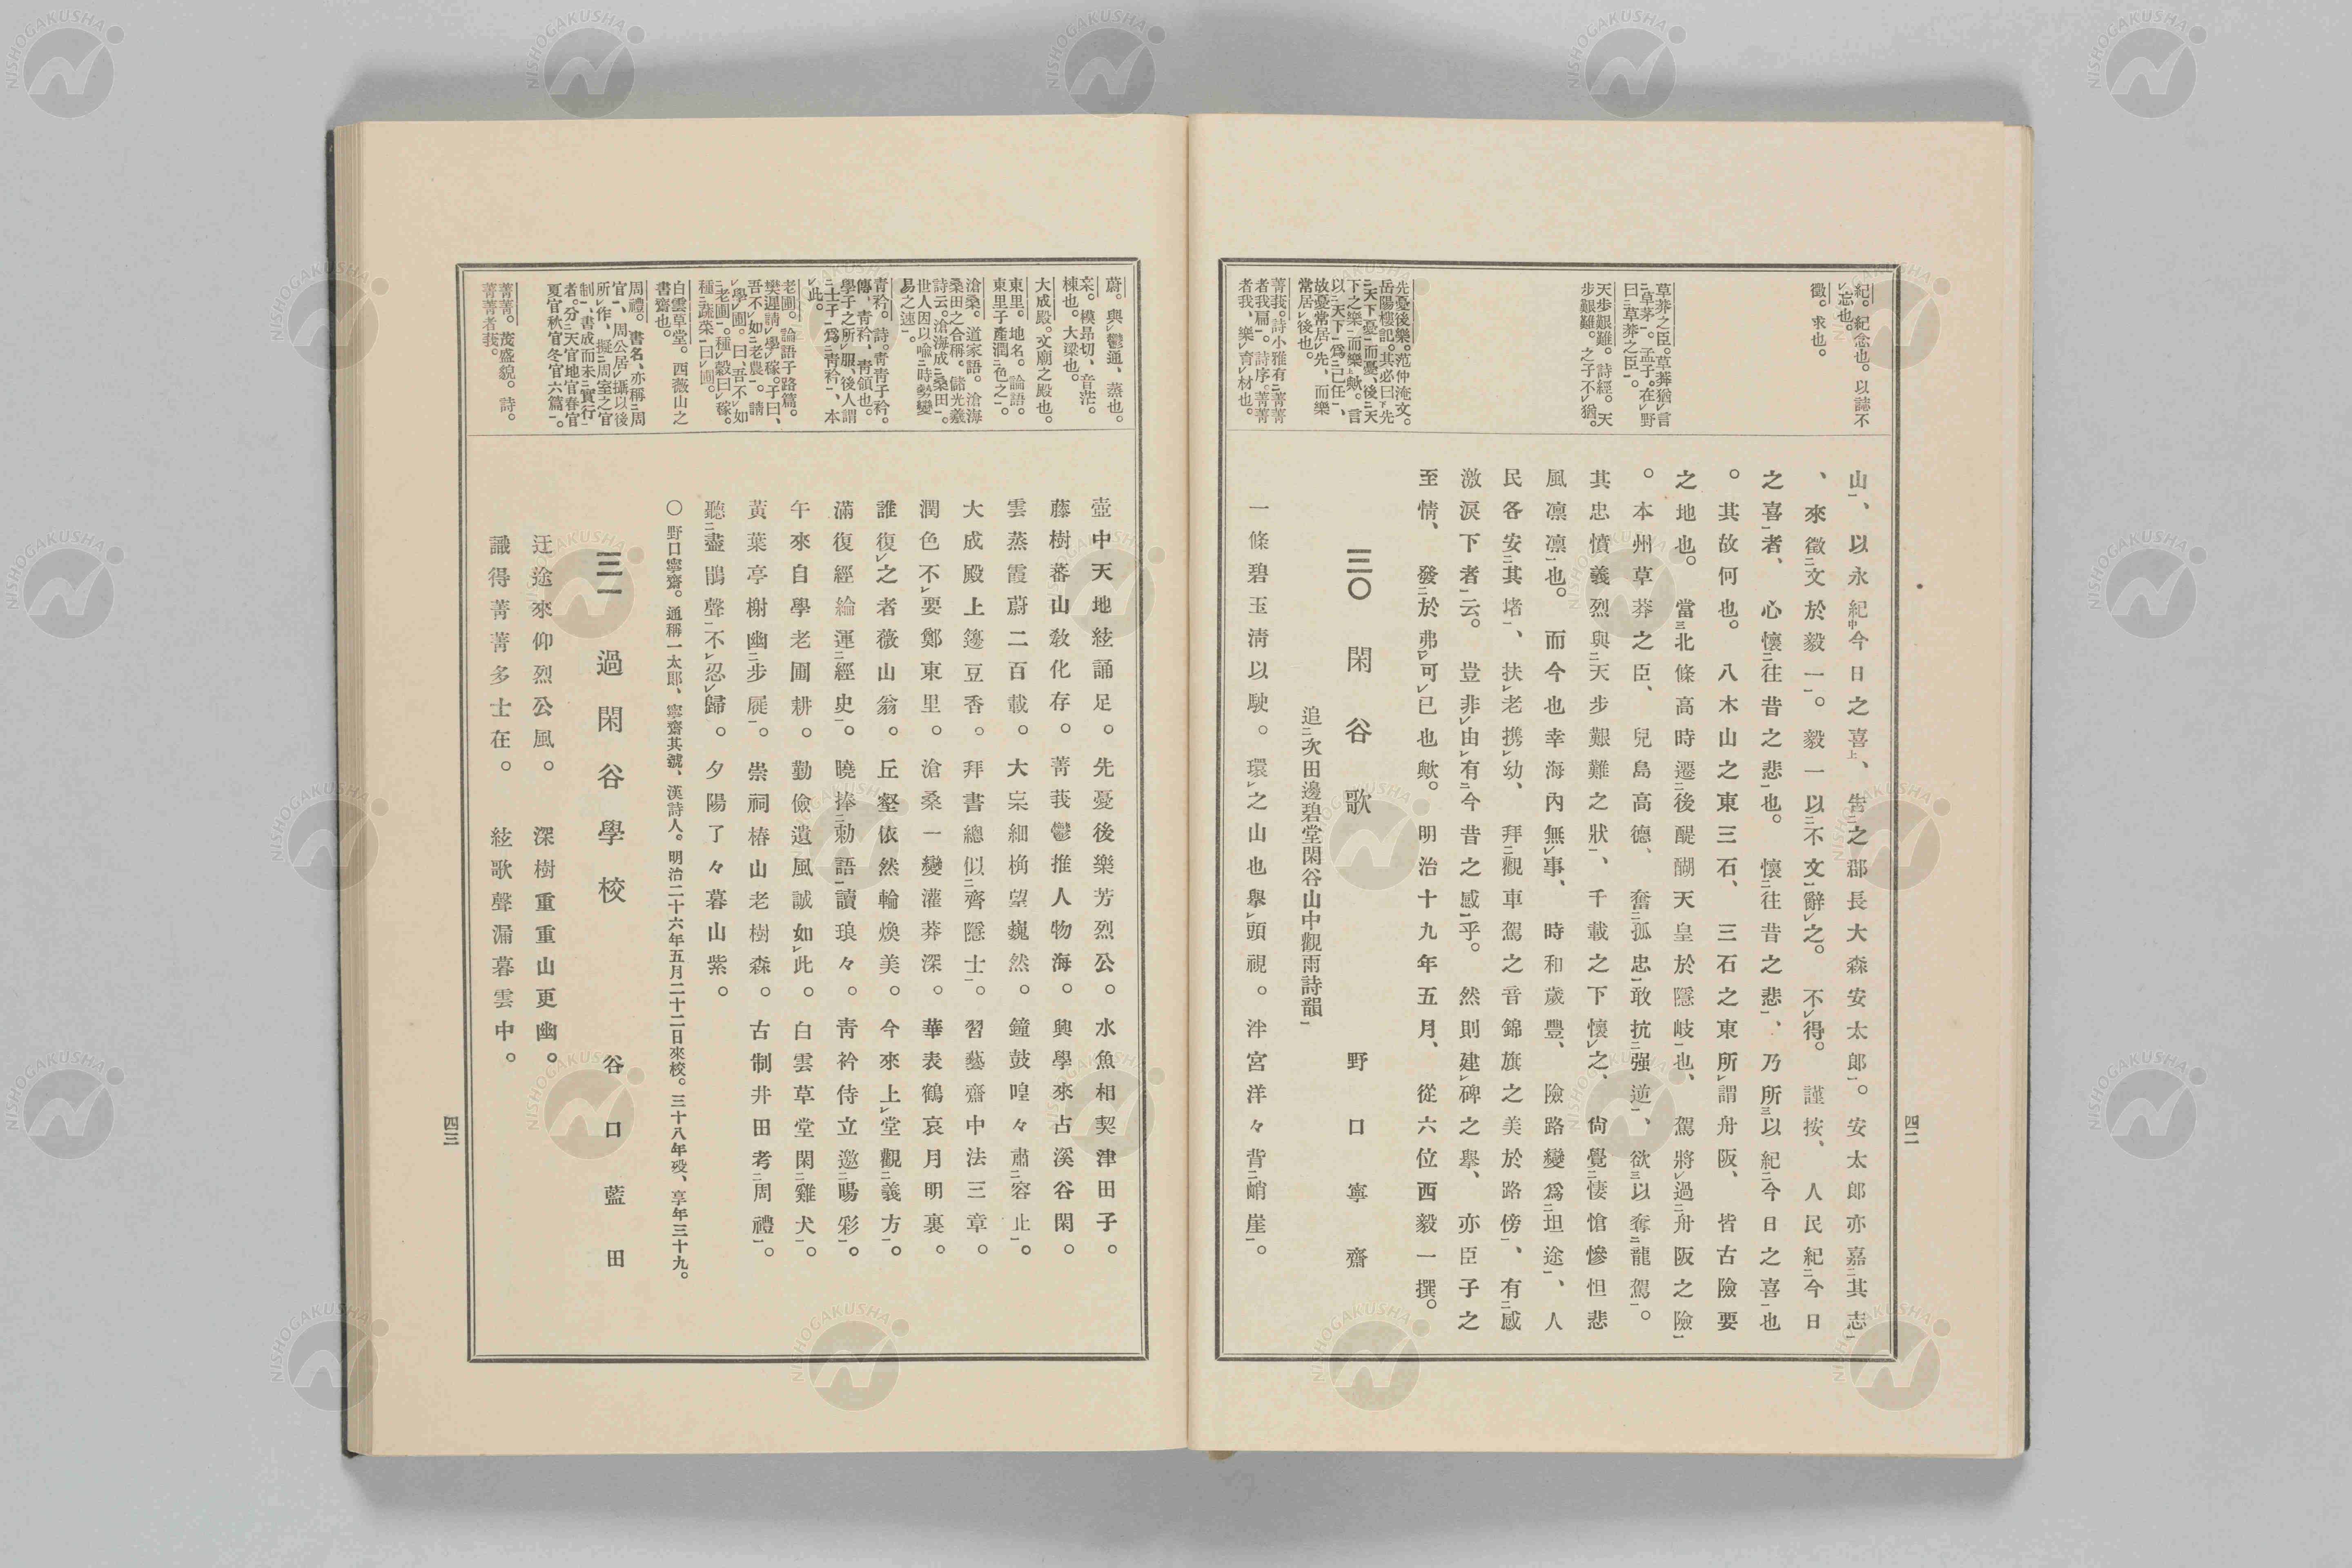 紀。紀念也。以誌不
レ忘也。
徵。求也。
草莽之臣。草莽猶レ言
二草茅一。孟子。在レ野
曰二草莽之臣一。
天步艱難。詩經。天
步艱難。之子不レ猶。
先憂後樂。范仲淹文。
岳陽樓記。其必曰下先
二天下憂一而憂、後二天
下之樂一而樂上歟。言
以二天下一爲二己任一、
故憂常居レ先、而樂
常居レ後也。
菁莪。詩小雅有二菁菁
者莪扁一。詩序。菁菁
者莪、樂レ育レ材也。
山一、以永紀中今日之喜上、告二之郡長大森安太郎一。安太郎亦嘉二其志一
、來徵二文於毅一一。毅一以二不文一辭レ之。不レ得。謹按、人民紀二今日
之喜一者、心懷二往昔之悲一也。懷二往昔之悲一、乃所三以紀二今日之喜一也
。其故何也。八木山之東三石、三石之東所レ謂舟阪、皆古險要
之地也。當三北條高時遷二後醍醐天皇於隱岐一也、駕將レ過二舟阪之險一
。本州草莽之臣、兒島高德、奮二孤忠一敢抗二强逆一、欲三以奪二龍駕一。
其忠憤義烈與二天步艱難之狀一、千載之下懷レ之、尙覺二悽愴慘怛悲
風凛凛一也。而今也幸海內無レ事、時和歲豐、險路變爲二坦途一、人
民各安二其堵一、扶レ老携レ幼、拜二觀車駕之音錦旗之美於路傍一、有二感
激淚下者一云。豈非レ由レ有二今昔之感一乎。然則建レ碑之擧、亦臣子之
至情、發二於弗レ可レ已也歟。明治十九年五月、從六位西毅一撰。
三〇　閑谷歌　野口寧齋
追二次田邊碧堂閑谷山中觀雨詩韻一
一條碧玉淸以駛。環レ之山也擧レ頭視。泮宮洋々背二峭崖一。
四二
蔚。與レ鬱通、蒸也。
杗。模昂切、音茫。
棟也。大梁也。
大成殿。文廟之殿也。
東里。地名。論語。
東里子產潤二色之一。
滄桑。道家語。滄海
桑田之合稱。儲光羲
詩云。滄海成二桑田一。
世人因以喩二時勢變
易之速一。
靑衿。詩。靑靑子衿。
傳、靑衿、靑領也。
學子之所レ服、後人謂
二士子一爲二靑衿一、本
レ此。
老圃。論語子路篇。
樊遲請レ學レ稼。子曰、
吾不レ如二老農一。請
レ學レ圃。曰、吾不レ如
二老圃一。種レ穀曰レ稼。
種二蔬菜一曰レ圃。
白雲草堂。西薇山之
書齋也。
周禮。書名、亦稱二周
官一、周公居レ攝以後
所レ作、擬二周室之官
制一、書成而未二實行一
者。分二天官地官春官
夏官秋官冬官六篇一。
菁菁。茂盛貌。詩。
菁菁者莪。
壺中天地絃誦足。先憂後樂芳烈公。水魚相契津田子。
藤樹蕃山敎化存。菁莪鬱推人物海。興學來占溪谷閑。
雲蒸霞蔚二百載。大杗細桷望巍然。鐘鼓喤々肅二容止一。
大成殿上籩豆香。拜書總似二齊隱士一。習藝齋中法三章。
潤色不レ要鄭東里。滄桑一變灌莽深。華表鶴哀月明裏。
誰復レ之者薇山翁。丘壑依然輪煥美。今來上レ堂觀二義方一。
滿復經綸運二經史一。曉捧二勅語一讀琅々。靑衿侍立邀二暘彩一。
午來自學老圃耕。勤儉遺風誠如レ此。白雲草堂閑二雞犬一。
黃葉亭榭幽二步屣一。崇祠椿山老樹森。古制井田考二周禮一。
聽二盡鵑聲一不レ忍レ歸。夕陽了々暮山紫。
○野口寧齋。通稱一太郎、寧齋其號、漢詩人。明治二十六年五月二十二日來校。三十八年歿、享年三十九。
三一　過閑谷學校　谷口藍田
迂途來仰烈公風。深樹重重山更幽。
識得菁菁多士在。絃歌聲漏暮雲中。
四三